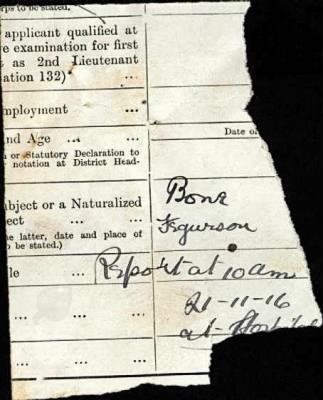 rps to be stated.
applicant qualified at
e examination for first
t as 2nd Lieutenant
ation 132) ...
mployment ...
nd Age ... ...
Date of
n or Statutory Declaration to
notation at District Head-
ubject or a Naturalized
ect ... ...
he latter, date and place of
o be stated.)
Bone
Fgurson
le ...
Report at 10 am
21-11-16
... ...
at
... ...